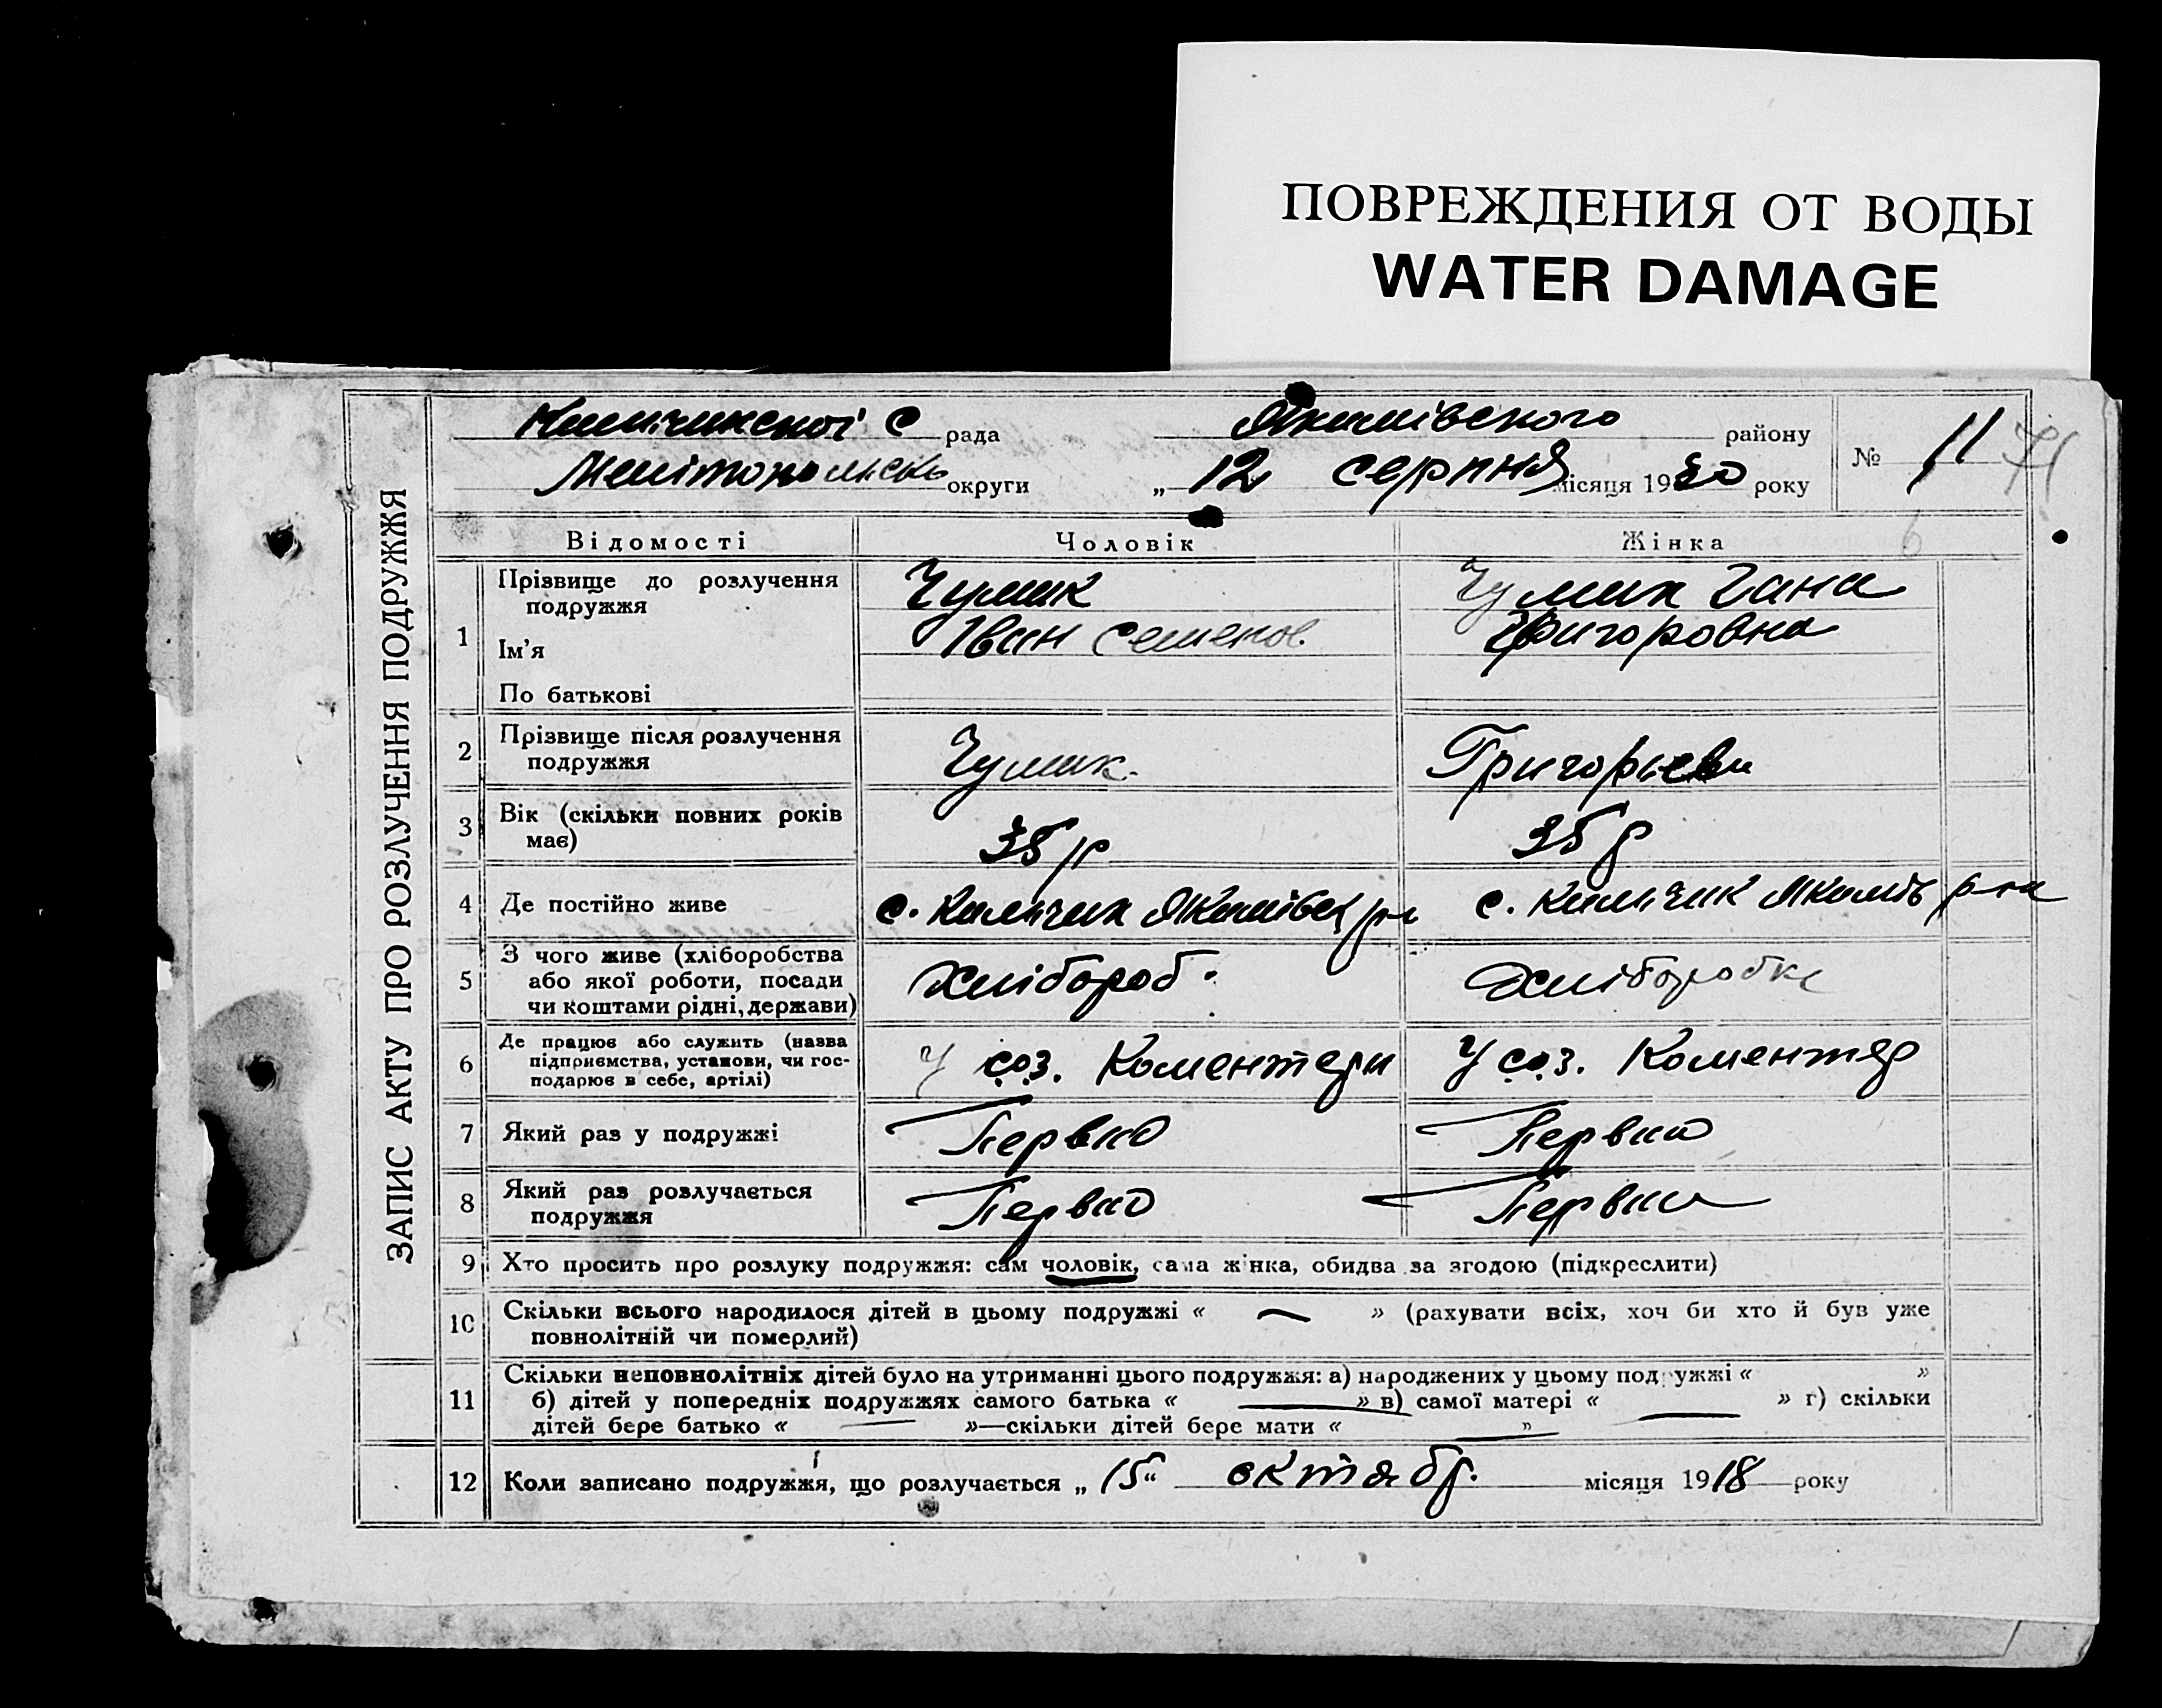 ПОВРЕЖДЕНИЯ ОТ ВОДЫ
WATER DAMAGE
ЗАПИС АКТУ ПРО РОЗЛУЧЕННЯ ПОДРУЖЖЯ
с рада Якимівского району № 11 71
округи „ 12 серпня місяця 1930 року
Відомості Чоловік Жінка 6
1 Прізвище до розлучення подружжя Чумак Чумак Гана
Ім'я Іван Семенов. Григоровна
По батькові
2 Прізвище після розлучення подружжя Чумак. Григорьева
3 Вік (скільки повних років має) р 35 р
4 Де постійно живе с. с.
5 З чого живе (хліборобства або якої роботи, посади чи коштами рідні, держави) Хлібороб. Хліборобка
6 Де працює або служить (назва підприємства, установи, чи господарює в себе, артілі) У соз. Коментерн У соз. Коментер
7 Який раз у подружжі Первий Первий
8 Який раз розлучається подружжя Первий
9 Хто просить про розлуку подружжя: сам чоловік, сама жінка, обидва за згодою (підкреслити)
10 Скільки всього народилося дітей в цьому подружжі « — » (рахувати всіх, хоч би хто й був уже
повнолітній чи померлий)
11 Скільки неповнолітніх дітей було на утриманні цього подружжя: а) народжених у цьому подружжі « »
б) дітей у попередніх подружжях самого батька « — » в) самої матері « — » г) скільки
дітей бере батько « — »—скільки дітей бере мати « — »
12 Коли записано подружжя, що розлучається „ 15 “ октябр. місяця 1918 року